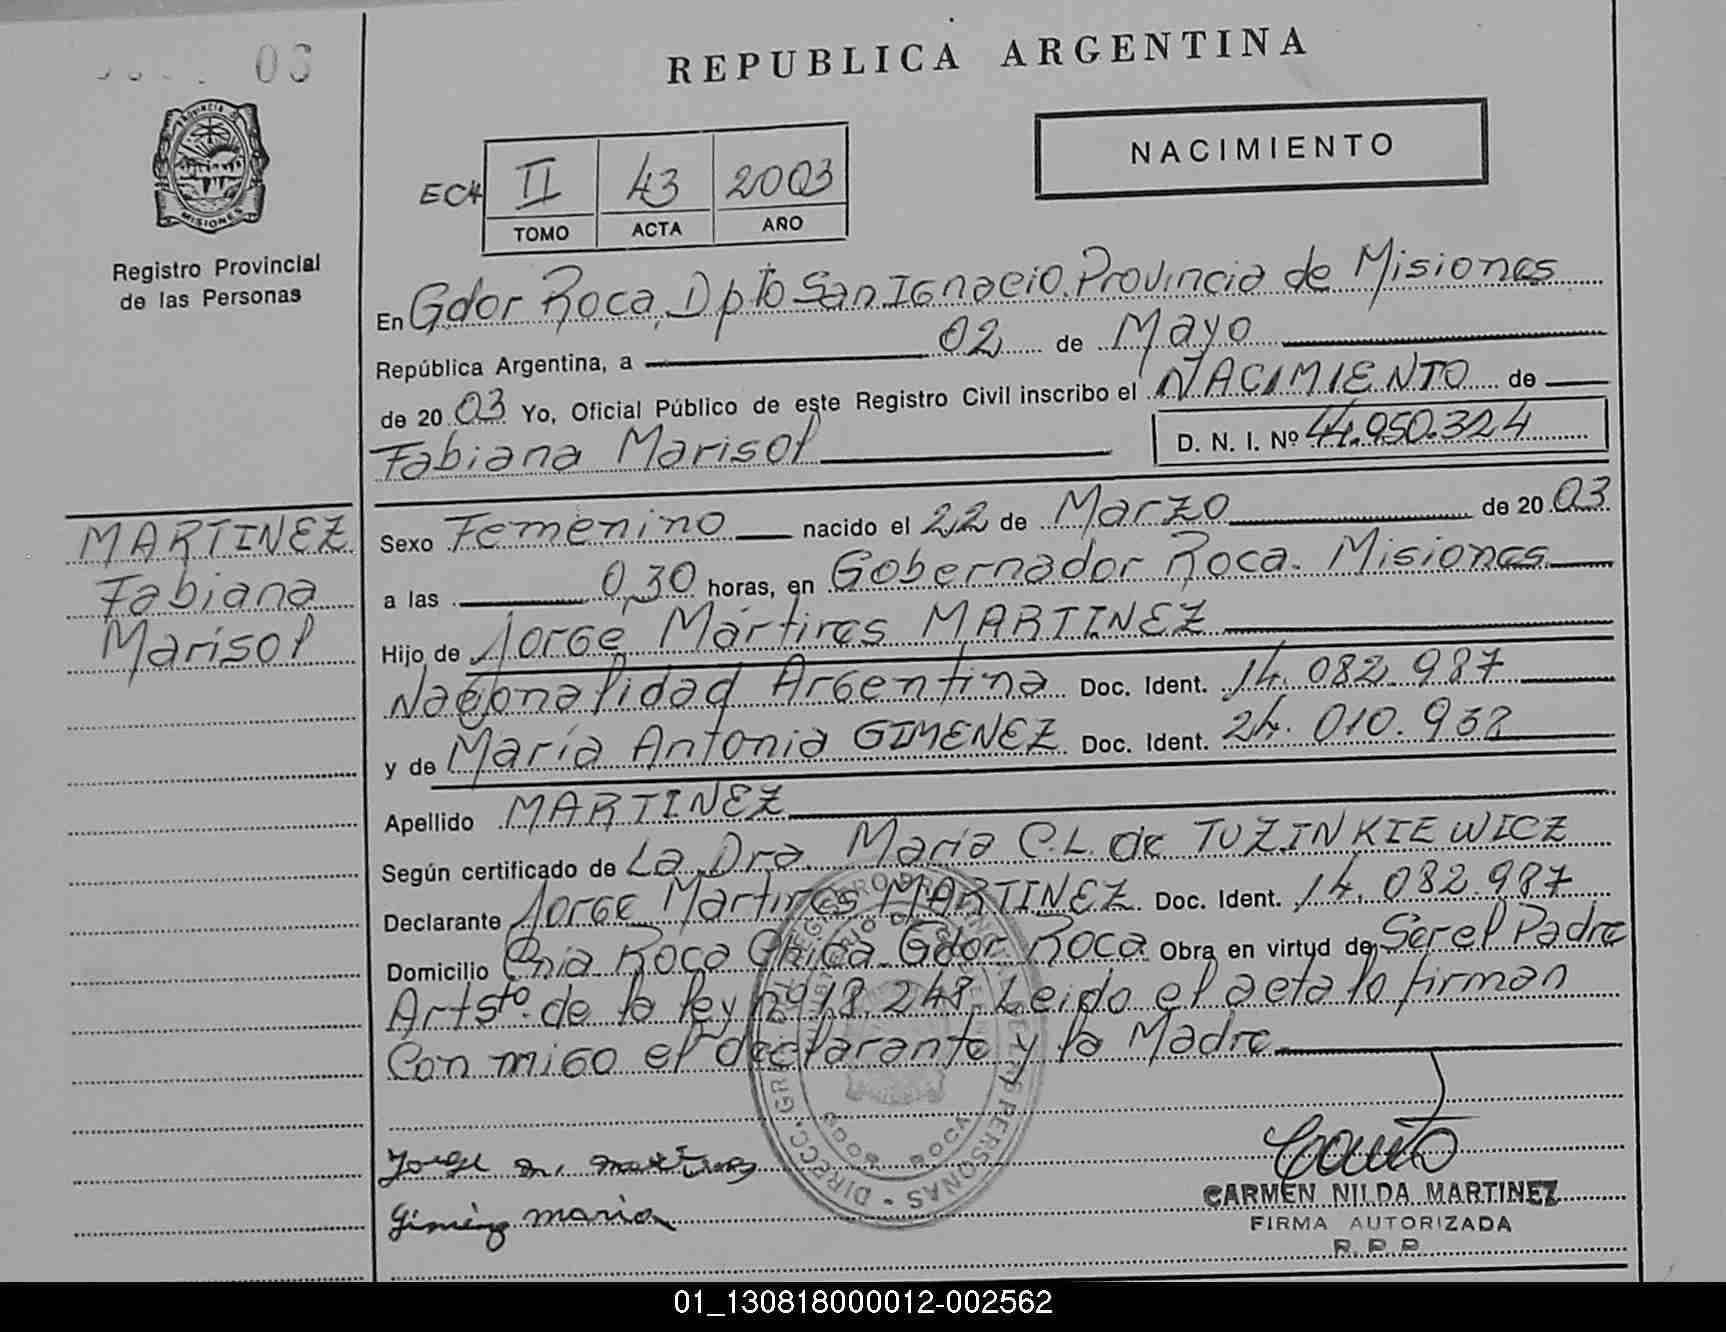 03
REPUBLICA ARGENTINA
PROVINCIA DE
MISIONES
NACIMIENTO
EC4 II 43 2003
TOMO ACTA AÑO
Registro Provincial
de las Personas
En Gdor Roca, Dpto San Ignacio. Provincia de Misiones
República Argentina, a 02 de Mayo
de 20 03 Yo, Oficial Público de este Registro Civil inscribo el NACIMIENTO de
Fabiana Marisol D. N. I. Nº 44.950.324
MARTINEZ
Fabiana
Marisol
Sexo Femenino nacido el 22 de Marzo de 20 03
a las 0,30 horas, en Gobernador Roca. Misiones
Hijo de Jorge Martires MARTINEZ
Nacionalidad Argentina Doc. Ident. 14.082.987
y de María Antonia GIMENEZ Doc. Ident. 24.010.932
Apellido MARTINEZ
Según certificado de La Dra. María C.L. de TUZINKIEWICZ
Declarante Jorge Martires MARTINEZ Doc. Ident. 14.082.987
Domicilio Cnia Roca Chica. Gdor Roca Obra en virtud de Ser el Padre
Art 5to. de la ley nº 18.248. Leido el acta lo firman
Con migo el declarante y la Madre
Jorge M. Martires
Giménez maria
CARMEN NILDA MARTINEZ
FIRMA AUTORIZADA
R.P.P.
DIRECC. GRAL. REGISTRO PROVINCIAL DE LAS PERSONAS
GDOR. ROCA
01_130818000012-002562